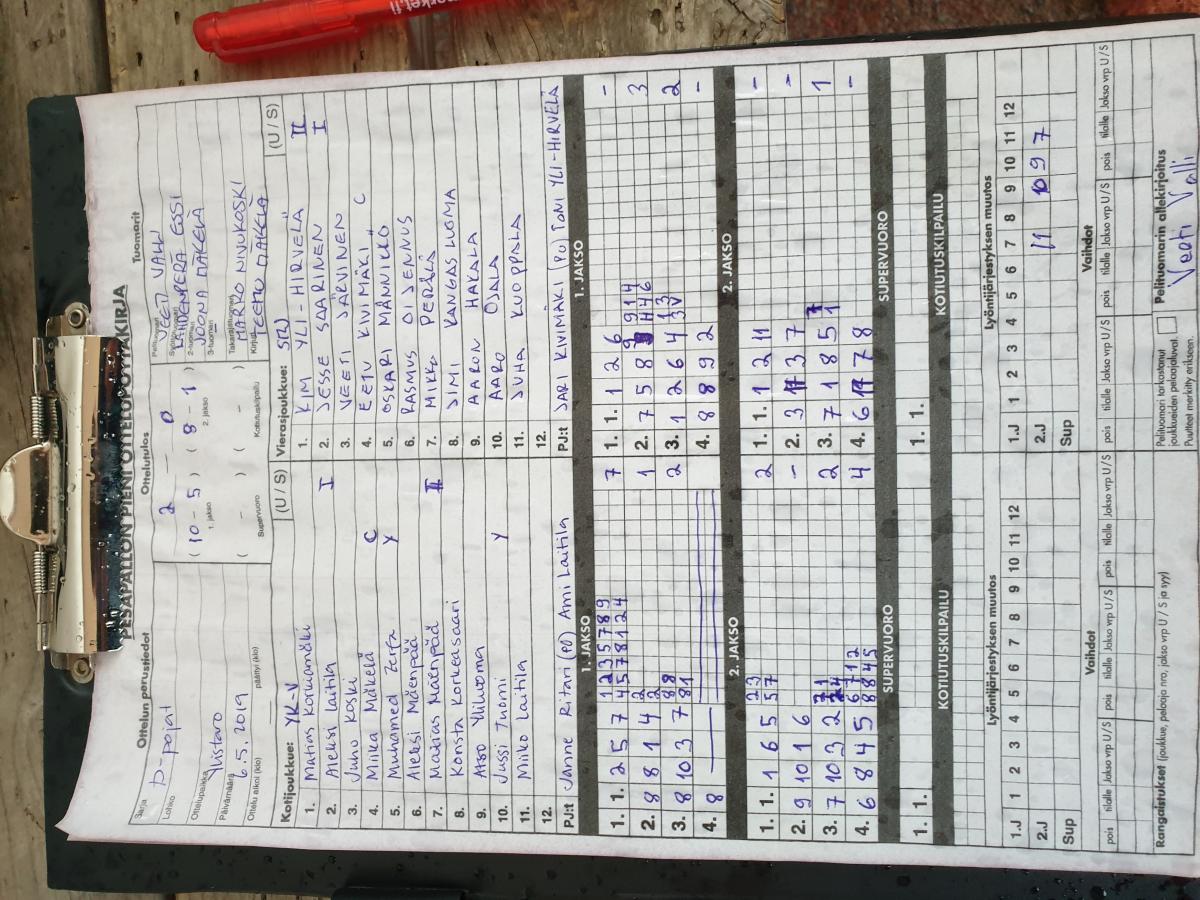 market.fi
PESÄPALLON PIENI OTTELUPÖYTÄKIRJA
Ottelun perustiedot
Sarja
D-pojat
Lohko
Ottelupaikka
Ylistaro
Päivämäärä
6.5. 2019
Ottelu alkoi (klo)
päättyi (klo)
Ottelutulos
2 - 0
( 10 - 5 ) ( 8 - 1 )
1. jakso 2. jakso
( - ) ( - )
Supervuoro Kotiutuskilpailu
Tuomarit
Pelituomari
VEETI VALLI
Syöttötuomari
ESSI
2-tuomari
JOONA MÄKELÄ
3-tuomari
Takarajatuomari
MARKO NIVUKOSKI
Kirjuri
TEEMU MÄKELÄ
Kotijoukkue: YK-V (U / S)
1. Matias Korkiamäki
2. Aleksi Laitila I
3. Juho Koski
4. Miika Mäkelä C
5. Muhamed Y
6. Aleksi Mäenpää
7. Matias Mäenpää II
8. Konsta Korkeasaari
9. Atso Yliluoma
10. Jussi Tuomi Y
11. Miiko Laitila
12.
PJ:t Janne Ritari (PO) Ami Laitila
Vierasjoukkue: (U / S)
1. KIM YLI-HIRVELÄ II
2. JESSE SAARINEN I
3. VEETI JÄRVINEN
4. EETU KIVIMÄKI C
5. OSKARI MÄNNIKKÖ
6. RASMUS
7. MIKK
8. JIMI KANGASLUOMA
9. AARON HAKALA
10. AARO OJALA
11. JUHA KUOPPALA
12.
PJ:t JARI KIVIMÄKI (PO) TONI YLI-HIRVELÄ
1. JAKSO
1. 1. 2 5 7 1 2 3 5 7 8 9 7
4 5 7 8 1 2 4
2. 8 8 1 4 2 1
2
3. 8 10 3 7 8 8 2
8 1
4. 8
2. JAKSO
1. 1. 1 6 5 2 3 2
5 7
2. 9 10 1 6 -
3. 7 10 3 2 2
4. 6 8 4 5 6 7 1 2 4
8 8 4 5
SUPERVUORO
1. 1.
KOTIUTUSKILPAILU
1. JAKSO
1. 1. 1 2 6 -
2. 7 5 8 9 9 1 4 3
4 4 6
3. 1 2 6 4 1 3 2
4. 8 8 9 2 -
2. JAKSO
1. 1. 1 2 11 -
2. 3 11 3 7 -
3. 7 1 8 5 7 1
1
4. 6 11 7 8 -
SUPERVUORO
1. 1.
KOTIUTUSKILPAILU
Lyöntijärjestyksen muutos
1 2 3 4 5 6 7 8 9 10 11 12
1.J
2.J
Sup
Vaihdot
pois tilalle Jakso vrp U / S pois tilalle Jakso vrp U / S pois tilalle Jakso vrp U / S
Lyöntijärjestyksen muutos
1 2 3 4 5 6 7 8 9 10 11 12
1.J
2.J 11 10 9 7
Sup
Vaihdot
pois tilalle Jakso vrp U / S pois tilalle Jakso vrp U / S pois tilalle Jakso vrp U / S
Rangaistukset (joukkue, pelaaja nro, jakso vrp U / S ja syy)
Pelituomari tarkastanut
joukkueiden pelaajaluvat.
Puutteet merkitty erikseen.
Pelituomarin allekirjoitus
Veeti Valli